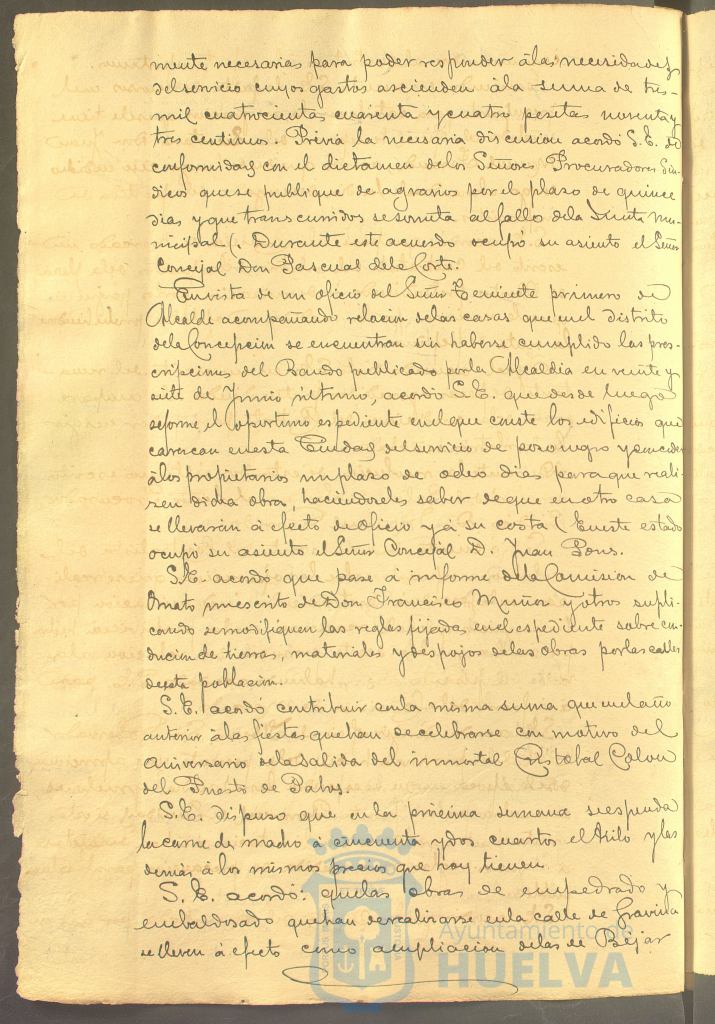 mente necesarias para poder responder á las necesidades
del servicio cuyos gastos ascienden á la suma de tres
mil cuatrocientas cuarenta y cuatro pesetas noventa y
tres centimos. Prévia la necesaria discusion acordó S.E. de
conformidad con el dictamen de los Señores Procuradores Sin-
dicos que se publique de agravios por el plazo de quince
dias y que transcurridos se someta al fallo de la Junta mu-
nicipal (. Durante este acuerdo ocupó su asiento el Señor
Concejal Don Pascual de la Corte.
En vista de un oficio del Señor Teniente primero de
Alcalde acompañando relacion de las casas que en el distrito
de la Concepcion se encuentran sin haberse cumplido las pres-
cripciones del Bando publicado por la Alcaldia en veinte y
siete de Junio último, acordó S.E. que desde luego
se forme el oportuno espediente en el que conste los edificios que
carezcan en esta Ciudad del servicio de pozo negro y conceder
á los propietarios un plazo de ocho dias para que reali-
sen dicha obra, haciendoseles saber de que en otro caso
se llevarán á efecto de oficio y á su costa (En este estado
ocupó su asiento el Señor Concejal D. Juan Pons.
S.E. acordó que pase á informe de la Comision de
Ornato un escrito de Don Francisco Muñoz y otros supli-
cando se modifiquen las reglas fijadas en el espediente sobre con-
duccion de tierras, materiales y despojos de las obras por las calles
de esta poblacion.
S.E. acordó contribuir con la misma suma que en el año
anterior á las fiestas que han de celebrarse con motivo del
aniversario de la salida del inmortal Cristobal Colon
del Puerto de Palos.
S.E. dispuso que en la prócima semana se espenda
la carne de macho á cincuenta y dos cuartos el kilo y las
demas á los mismos precios que hoy tienen.
S.E. acordó: que las obras de empedrado y
embaldosado que han de realizarse en la calle de Gravina
se lleven á efecto como ampliacion de las de Béjar
Ayuntamiento de
HUELVA